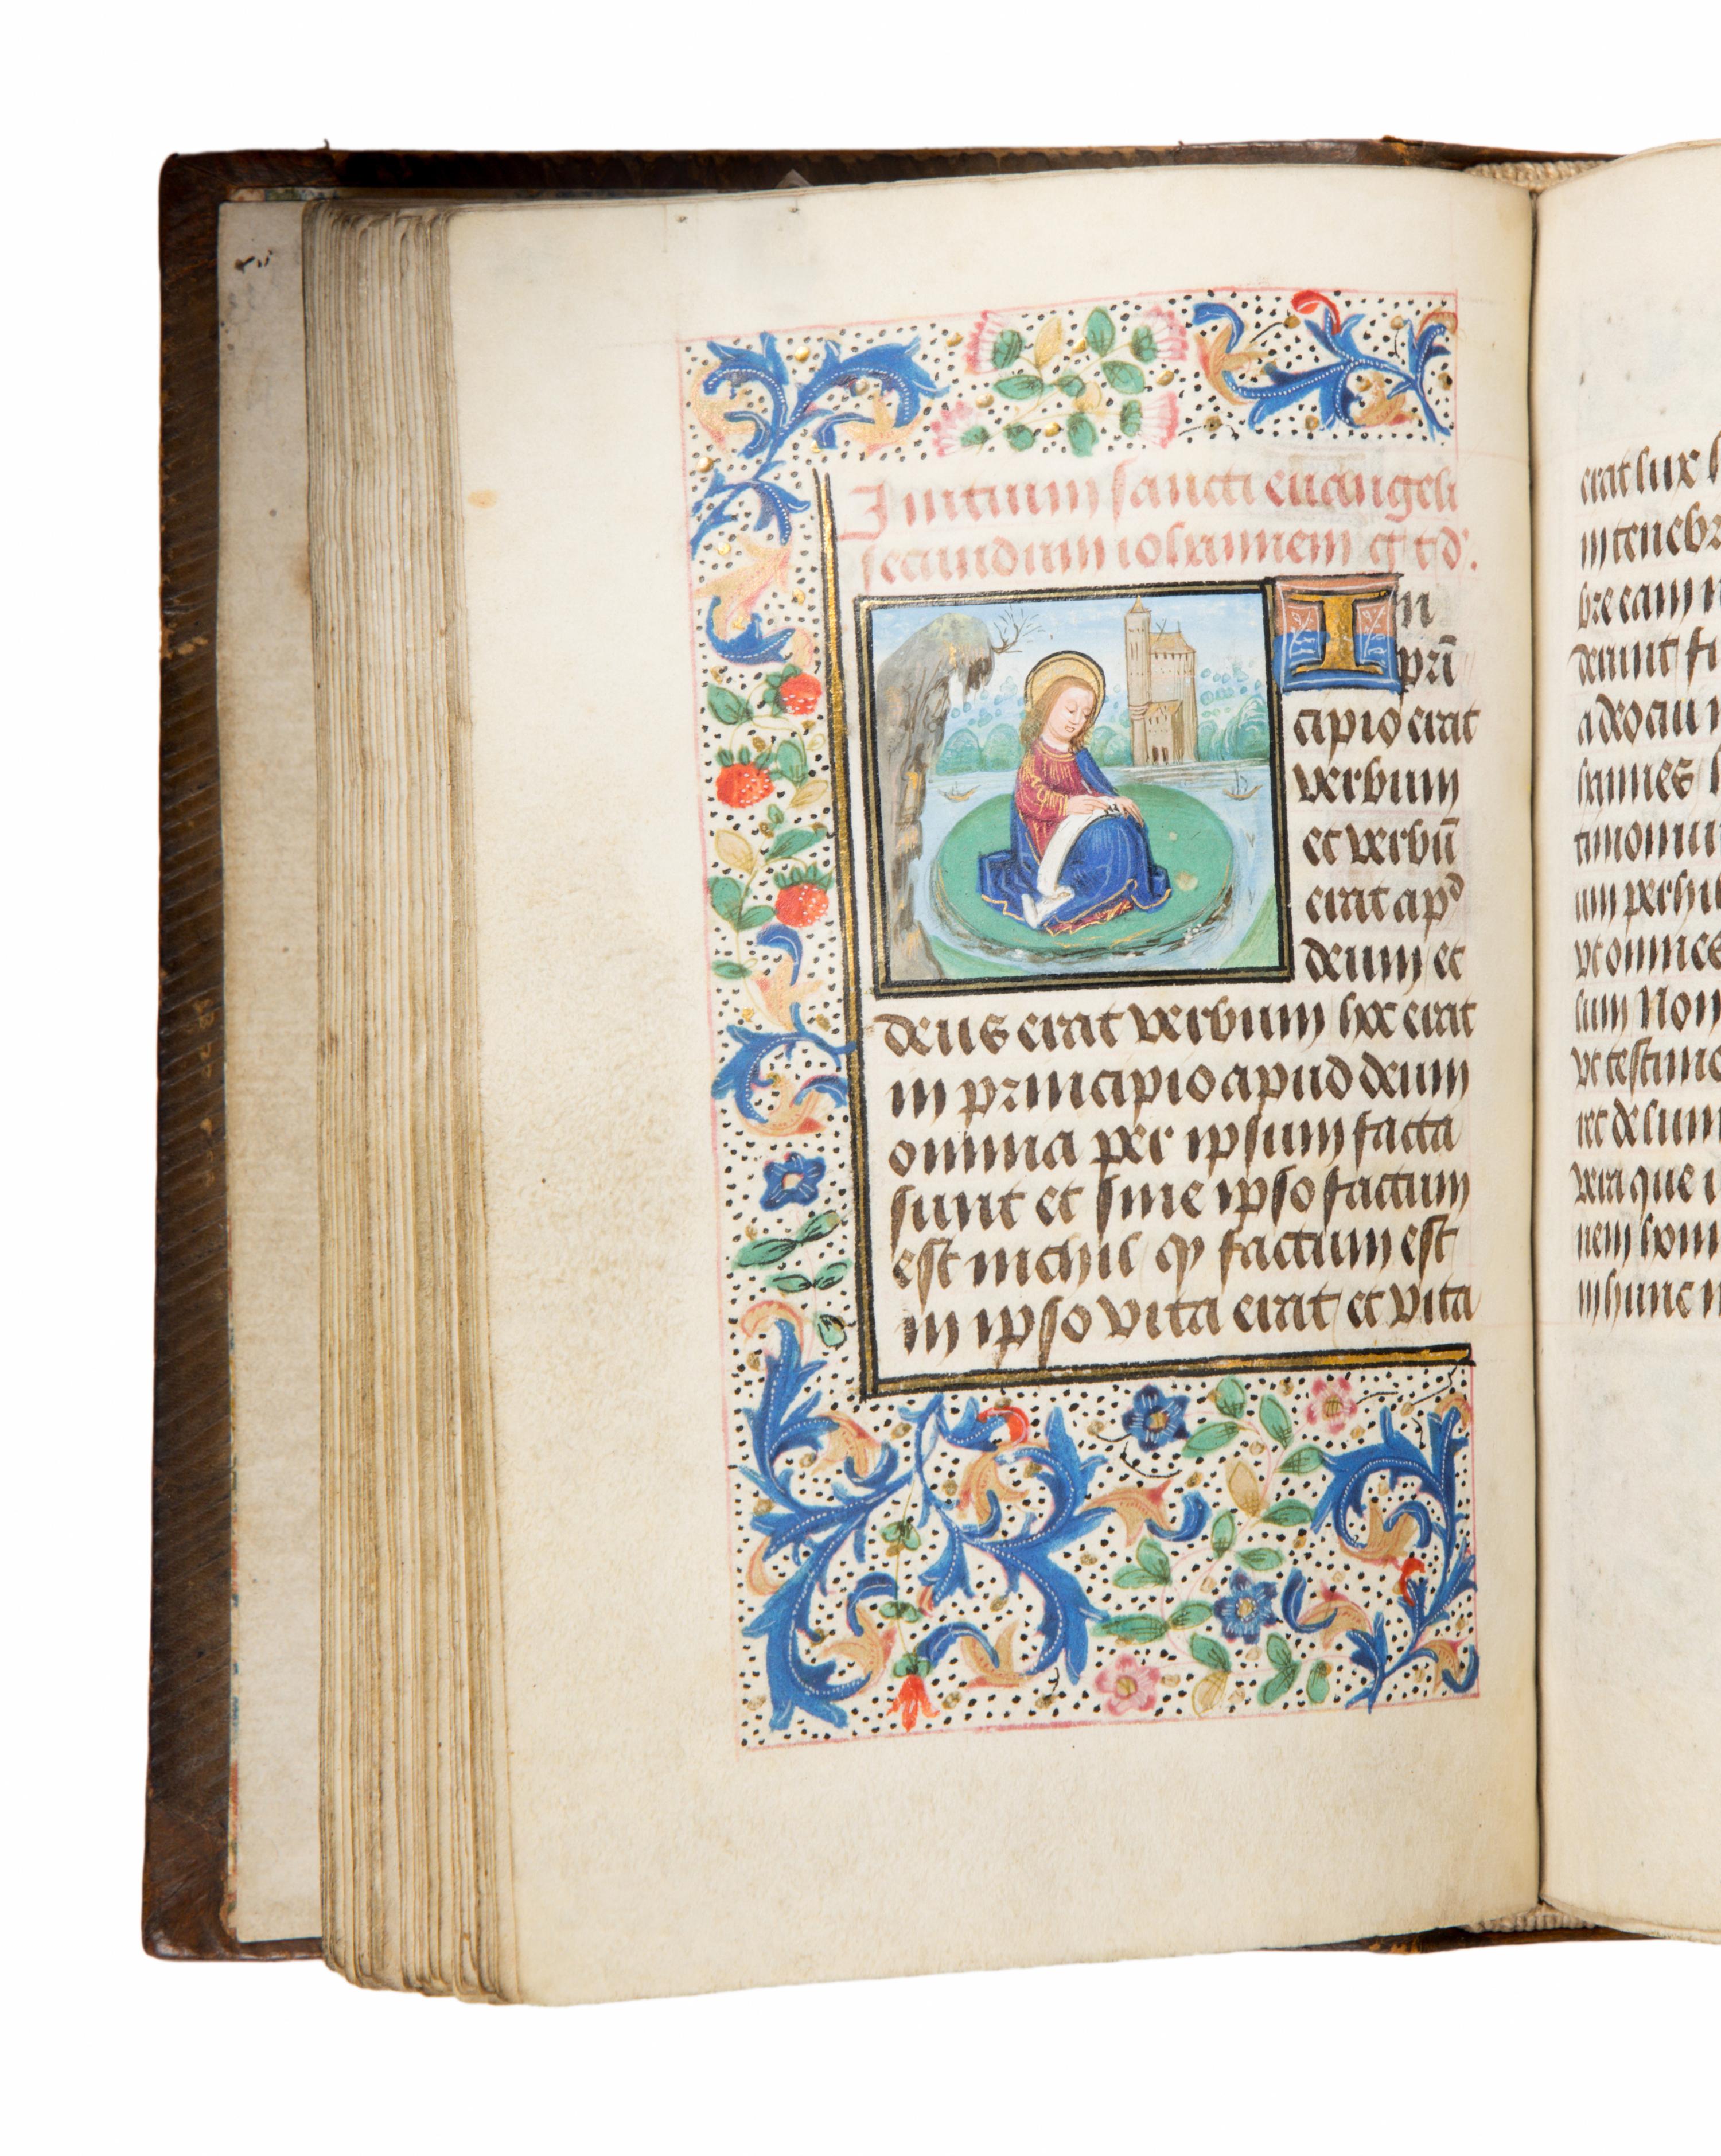 Initium sancti euangeli
secundum iohannem gltd'.
In
pri̅
cipio erat
verbum
et verbu̅
erat apd
deum et
deus erat verbum hoc erat
in principio apud deum
omnia per ipsum facta
sunt et sine ipso factum
est nichil qp factum est
in ipso vita erat et vita
erat lux h
in tenebr
bre eam n
a deo cui n
hannes h
timoniu
um perhi
vt omnes
lum Non
vt testimo
rat de lum
vera que i
nem homi
in hunc m